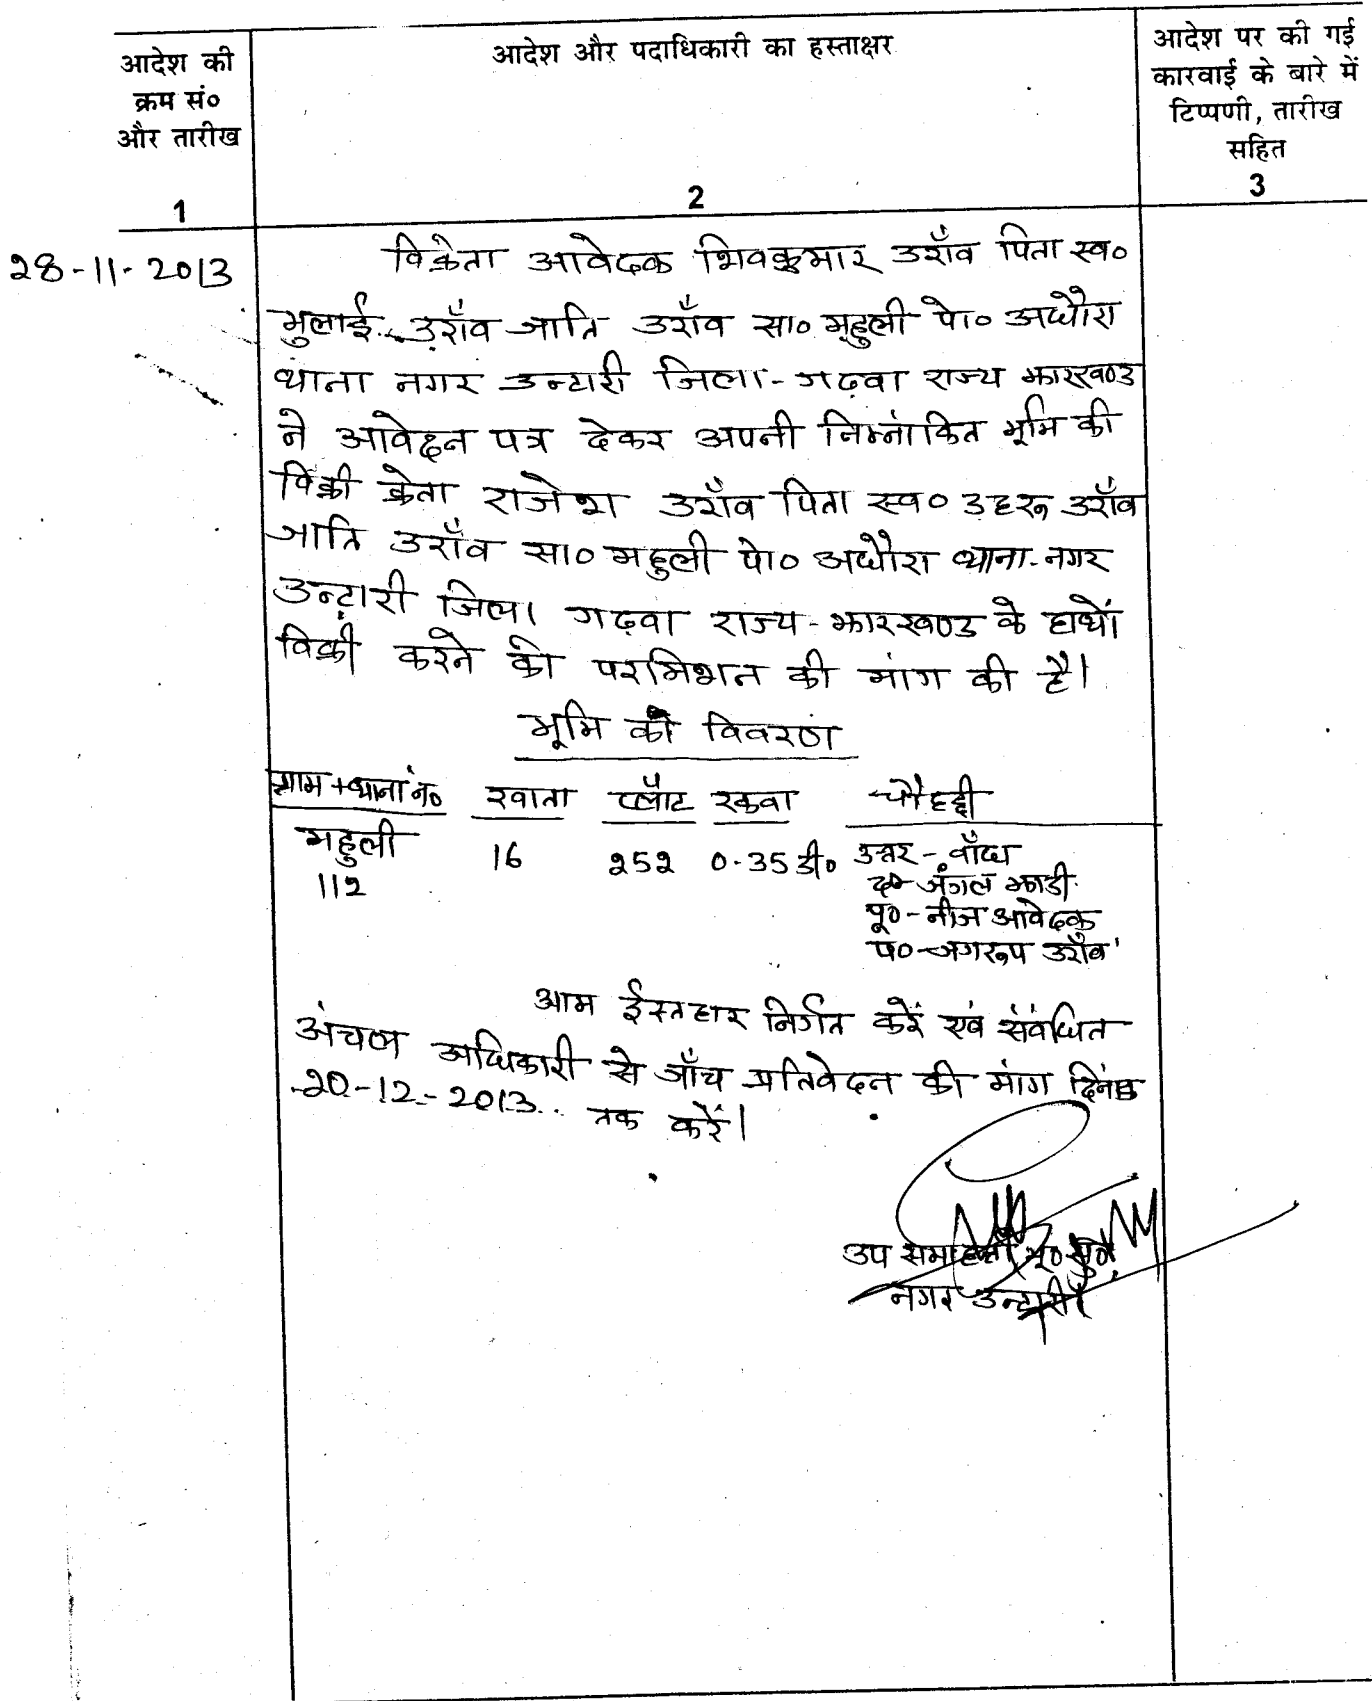 आदेश की
क्रम सं०
और तारीख
1
आदेश और पदाधिकारी का हस्ताक्षर
2
आदेश पर की गई
कारवाई के बारे में
टिप्पणी, तारीख
सहित
3
28-11-2013
विक्रेता आवेदक शिवकुमार उराँव पिता स्व०
भुलाई उराँव जाति उराँव सा० महुली पो० अधौरा
थाना नगर उन्टारी जिला-गढ़वा राज्य झारखण्ड
ने आवेदन पत्र देकर अपनी निम्नांकित भूमि की
विक्री क्रेता राजेश उराँव पिता स्व० उराँव
जाति उराँव सा० महुली पो० अधौरा थाना-नगर
उन्टारी जिला गढ़वा राज्य-झारखण्ड के हाथों
विक्री करने की परमिशन की मांग की है।
भूमि की विवरण
ग्राम+थाना नं० खाता प्लॉट रकवा चौहद्दी
महुली 16 252 0-35 डी० उत्तर-बाँध
112 द०-जंगल झाडी
पू०-नीज आवेदक
प०-जगरूप उराँव
आम ईस्तहार निर्गत करें एवं संबंधित
अंचल अधिकारी से जाँच प्रतिवेदन की मांग दिनांक
20-12-2013 तक करें।
उप समाहर्ता भू० सु०
नगर उन्टारी